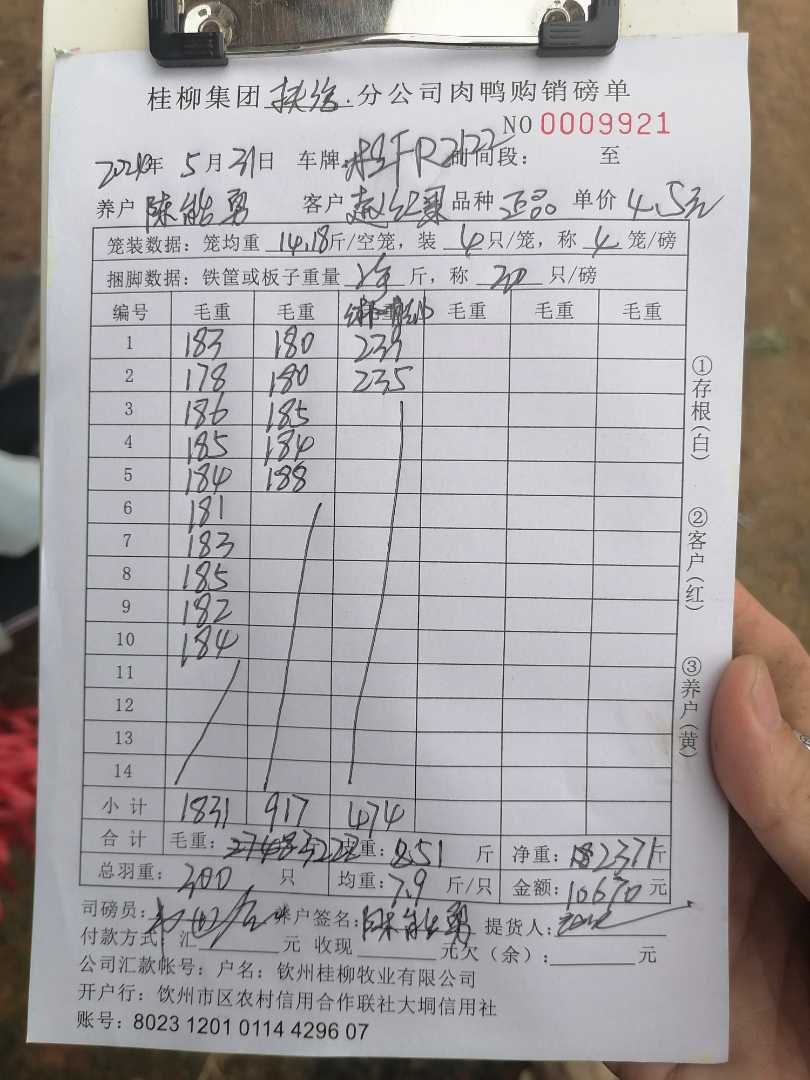 桂柳集团扶绥分公司肉鸭购销磅单
NO 0009921
年5月31日 车牌: 时间段: 至
养户 陈能勇 客户 赵 品种 正品 单价 4.5元
笼装数据: 笼均重 14.18斤/空笼, 装 4只/笼, 称 4 笼/磅
捆脚数据: 铁筐或板子重量 净 斤, 称 30 只/磅
编号 毛重 毛重 毛重 毛重 毛重
1 183 180 239
2 178 180 235
3 186 185
4 185 184
5 184 188
6 181
7 183
8 185
9 182
10 184
11
12
13
14
小计 1831 917 474
合计 毛重: 皮重: 851 斤 净重: 2371斤
总羽重: 300 只 均重: 7.9 斤/只 金额: 10670 元
司磅员: 养户签名: 陈能勇 提货人:
付款方式: 汇 元 收现 元欠(余): 元
公司汇款帐号: 户名: 钦州桂柳牧业有限公司
开户行: 钦州市区农村信用合作联社大垌信用社
账号: 8023 1201 0114 4296 07
①存根(白)
②客户(红)
③养户(黄)